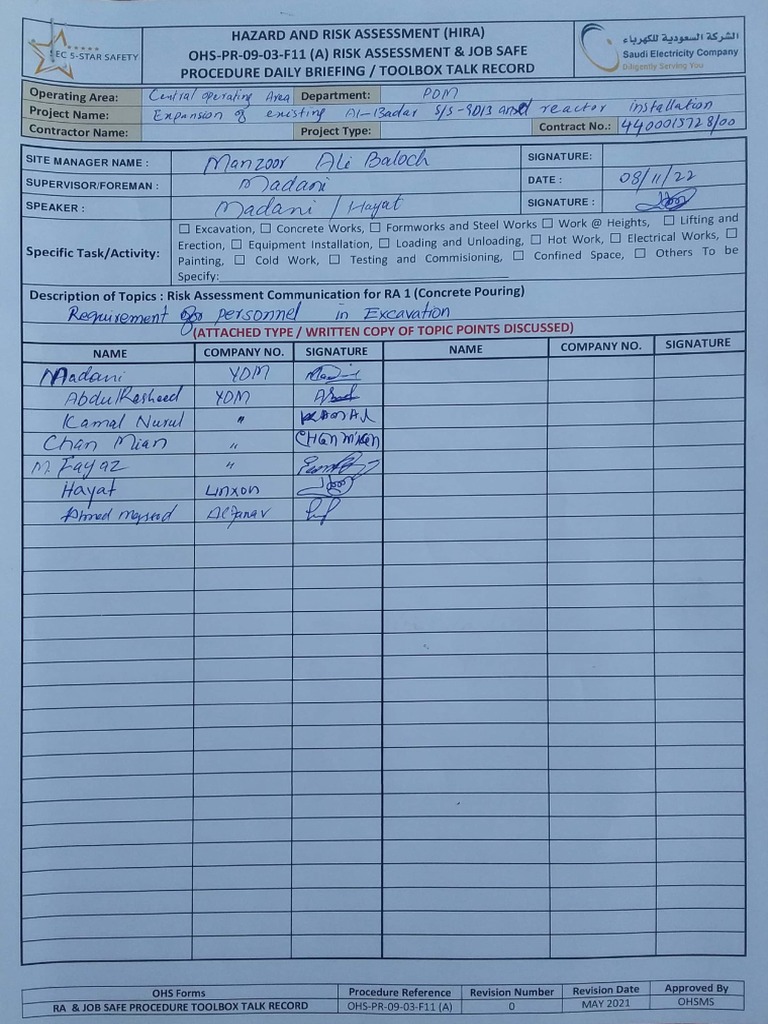 EC 5-STAR SAFETY
HAZARD AND RISK ASSESSMENT (HIRA)
OHS-PR-09-03-F11 (A) RISK ASSESSMENT & JOB SAFE
PROCEDURE DAILY BRIEFING / TOOLBOX TALK RECORD
الشركة السعودية للكهرباء
Saudi Electricity Company
Diligently Serving You
Operating Area: Central operating Area Department: PDM
Project Name: Expansion of existing Al-Badar S/S-9013 and reactor installation
Contractor Name: Project Type: Contract No.: 4400015728/00
SITE MANAGER NAME : Manzoor Ali Baloch SIGNATURE:
SUPERVISOR/FOREMAN : Madani DATE : 08/11/22
SPEAKER : Madani / Hayat SIGNATURE :
Specific Task/Activity:
☐ Excavation, ☐ Concrete Works, ☐ Formworks and Steel Works ☐ Work @ Heights, ☐ Lifting and
Erection, ☐ Equipment Installation, ☐ Loading and Unloading, ☐ Hot Work, ☐ Electrical Works, ☐
Painting, ☐ Cold Work, ☐ Testing and Commisioning, ☐ Confined Space, ☐ Others To be
Specify:
Description of Topics : Risk Assessment Communication for RA 1 (Concrete Pouring)
Requirement for personnel in Excavation
(ATTACHED TYPE / WRITTEN COPY OF TOPIC POINTS DISCUSSED)
NAME COMPANY NO. SIGNATURE NAME COMPANY NO. SIGNATURE
Madani YDM
Abdul Rasheed YDM
Kamal Nurul " KAMAL
Chan Mian " CHAN MIAN
M. Fayaz "
Hayat Linxon
Ahmed
OHS Forms Procedure Reference Revision Number Revision Date Approved By
RA & JOB SAFE PROCEDURE TOOLBOX TALK RECORD OHS-PR-09-03-F11 (A) 0 MAY 2021 OHSMS